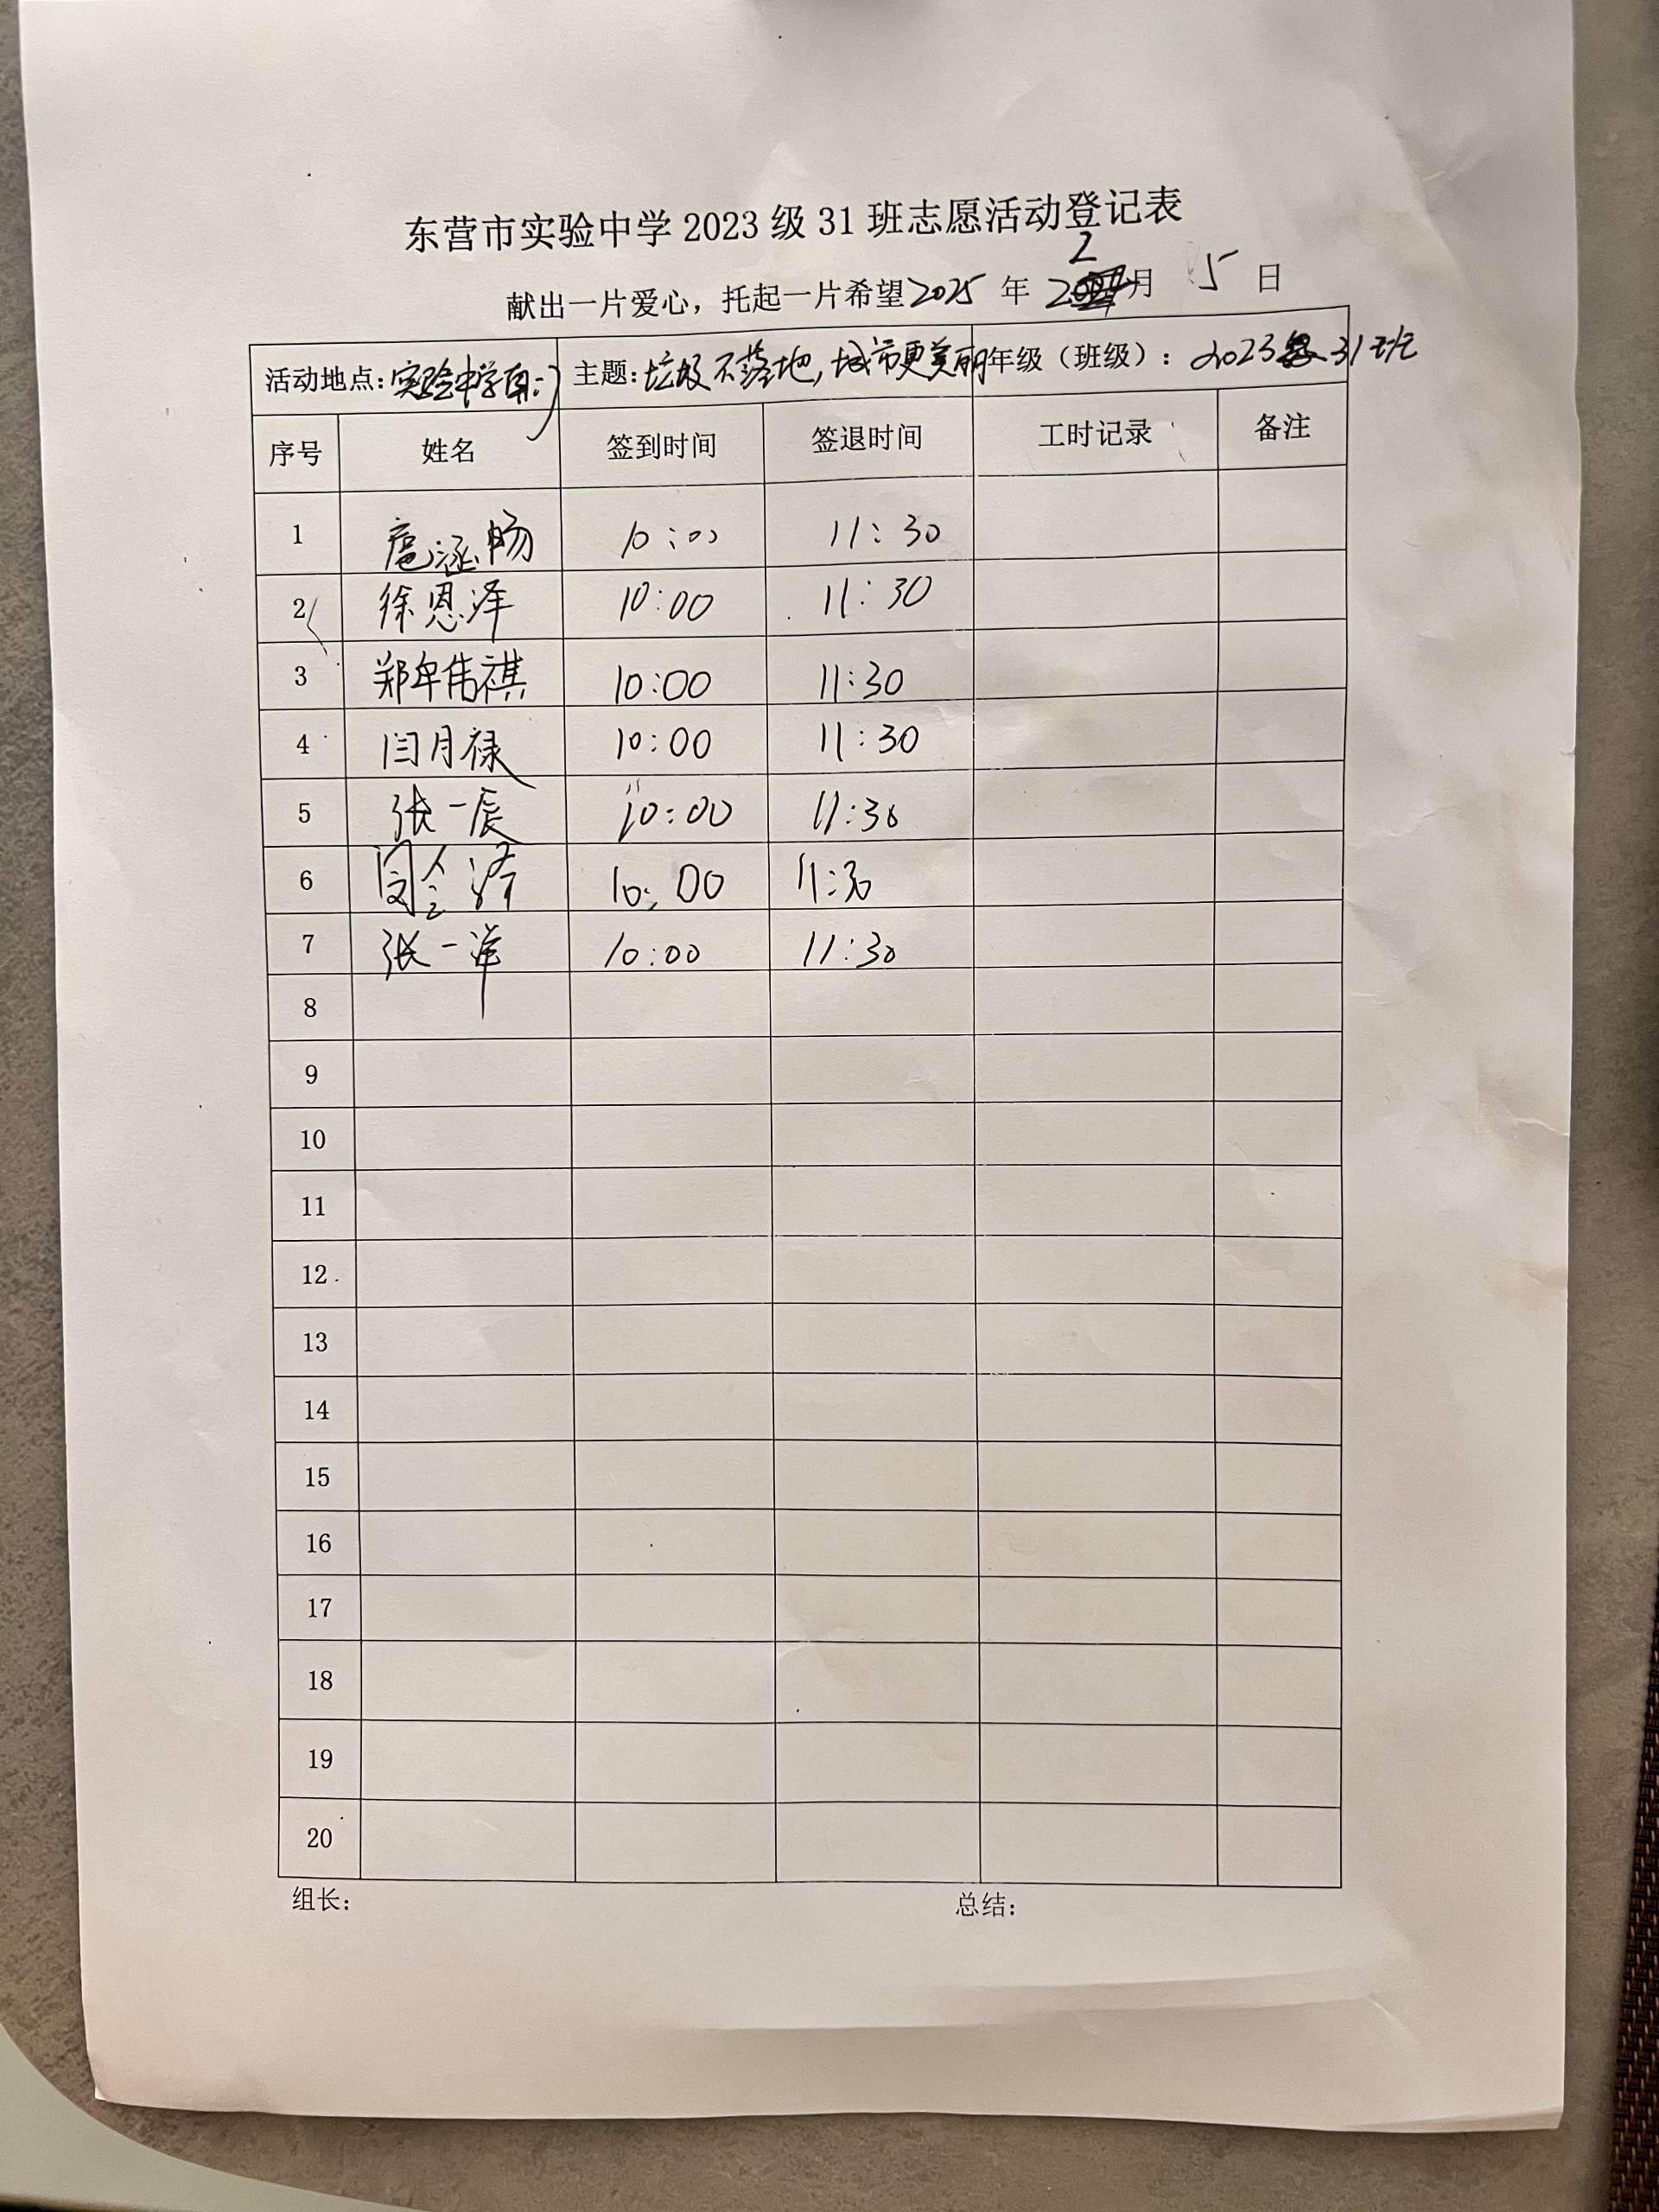 东营市实验中学 2023 级 31 班志愿活动登记表
献出一片爱心，托起一片希望 2025 年 2 月 5 日
活动地点：实验中学南门 主题：垃圾不落地，城市更美丽 年级（班级）：2023级31班
序号 姓名 签到时间 签退时间 工时记录 备注
1 扈涵畅 10:00 11:30
2 徐恩泽 10:00 11:30
3 郑牟伟祺 10:00 11:30
4 闫月禄 10:00 11:30
5 张一辰 10:00 11:30
6 10:00 11:30
7 张一洋 10:00 11:30
8
9
10
11
12
13
14
15
16
17
18
19
20
组长： 总结：